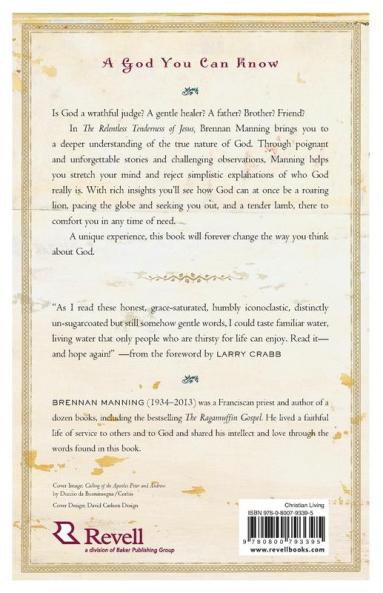 A God You Can Know
Is God a wrathful judge? A gentle healer? A father? Brother? Friend?
In The Relentless Tenderness of Jesus, Brennan Manning brings you to
a deeper understanding of the true nature of God. Through poignant
and unforgettable stories and challenging observations, Manning helps
you stretch your mind and reject simplistic explanations of who God
really is. With rich insights you'll see how God can at once be a roaring
lion, pacing the globe and seeking you out, and a tender lamb, there
to comfort you in any time of need.
A unique experience, this book will forever change the way you think
about God.
"As I read these honest, grace-saturated, humbly iconoclastic, distinctly
un-sugarcoated but still somehow gentle words, I could taste familiar water,
living water that only people who are thirsty for life can enjoy. Read it—
and hope again!" —from the foreword by LARRY CRABB
BRENNAN MANNING (1934–2013) was a Franciscan priest and author of a
dozen books, including the bestselling The Ragamuffin Gospel. He lived a faithful
life of service to others and to God and shared his intellect and love through the
words found in this book.
Cover Image: Calling of the Apostles Peter and Andrew
by Duccio da Buoninsegna / Corbis
Cover Design: David Carlson Design
Revell
a division of Baker Publishing Group
Christian Living
ISBN 978-0-8007-9339-5
9 780800 793395
www.revellbooks.com